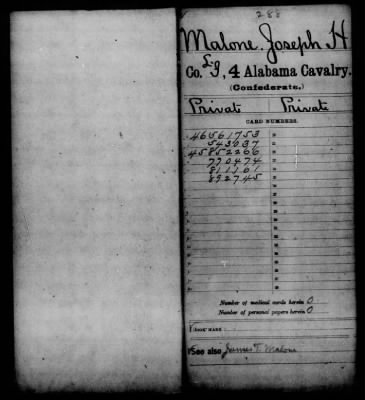 288
Malone, Joseph H
Co. I, 4 Alabama Cavalry.
(Confederate.)
Privat Privat
CARD NUMBERS.
46561753 "
543037 "
45852266 "
770474 "
811161 "
892745 "
Number of medical cards herein 0
Number of personal papers herein 0
BOOK MARK:
See also James T. Malone